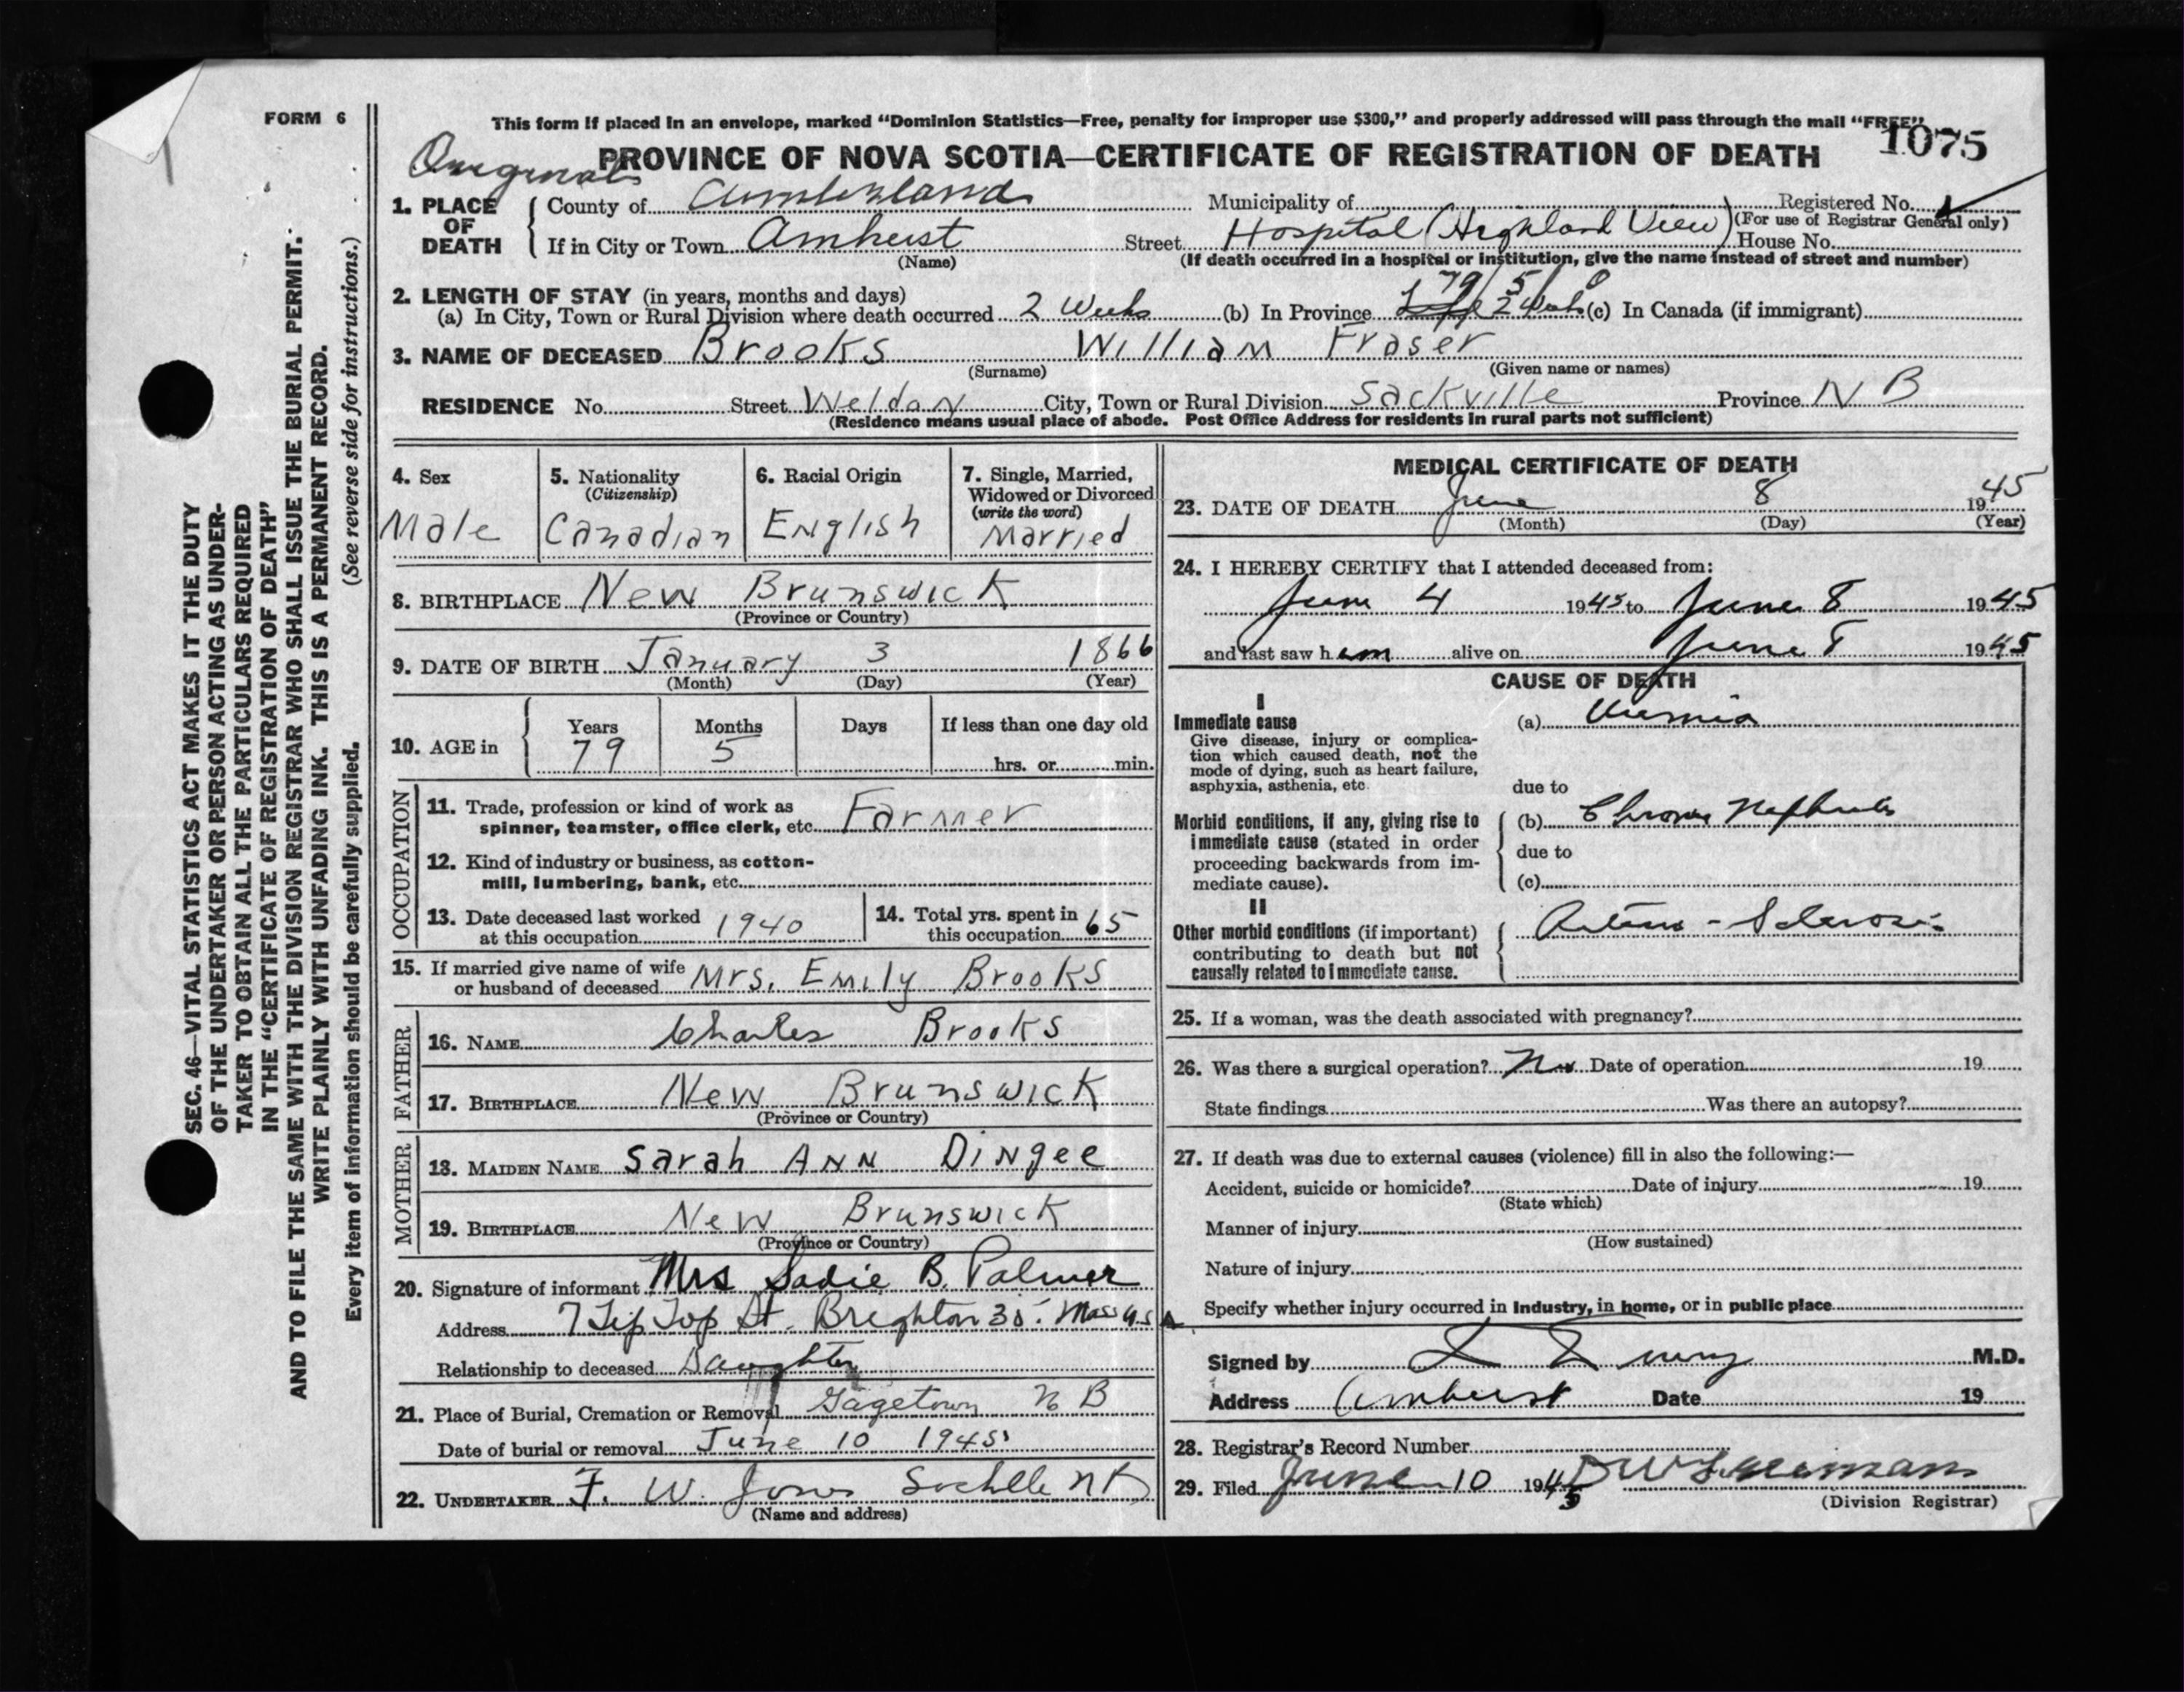 FORM 6
This form if placed in an envelope, marked “Dominion Statistics—Free, penalty for improper use $300,” and properly addressed will pass through the mail “FREE”
1075
Original
PROVINCE OF NOVA SCOTIA—CERTIFICATE OF REGISTRATION OF DEATH
1. PLACE OF DEATH
County of Cumberland Municipality of Registered No.
(For use of Registrar General only)
If in City or Town Amherst Street Hospital (Highland View) House No.
(Name) (If death occurred in a hospital or institution, give the name instead of street and number)
2. LENGTH OF STAY (in years, months and days) 79/5/0
(a) In City, Town or Rural Division where death occurred 2 Weeks (b) In Province (c) In Canada (if immigrant)
3. NAME OF DECEASED Brooks William Fraser
(Surname) (Given name or names)
RESIDENCE No. Street Weldon City, Town or Rural Division Sackville Province N B
(Residence means usual place of abode. Post Office Address for residents in rural parts not sufficient)
4. Sex
Male
5. Nationality
(Citizenship)
Canadian
6. Racial Origin
English
7. Single, Married,
Widowed or Divorced
(write the word)
Married
8. BIRTHPLACE New Brunswick
(Province or Country)
9. DATE OF BIRTH January 3 1866
(Month) (Day) (Year)
10. AGE in
Years Months Days If less than one day old
79 5
hrs. or min.
OCCUPATION
11. Trade, profession or kind of work as
spinner, teamster, office clerk, etc. Farmer
12. Kind of industry or business, as cotton-
mill, lumbering, bank, etc.
13. Date deceased last worked
at this occupation 1940
14. Total yrs. spent in
this occupation 65
15. If married give name of wife
or husband of deceased Mrs. Emily Brooks
FATHER
16. NAME Charles Brooks
17. BIRTHPLACE New Brunswick
(Province or Country)
MOTHER
18. MAIDEN NAME Sarah Ann Dingee
19. BIRTHPLACE New Brunswick
(Province or Country)
20. Signature of informant Mrs Sadie B. Palmer
Address 7 Tip Top St. Brighton 35. Mass U.S A
Relationship to deceased Daughter
21. Place of Burial, Cremation or Removal Gagetown N B
Date of burial or removal June 10 1945
22. UNDERTAKER F. W. Jones
(Name and address)
MEDICAL CERTIFICATE OF DEATH
23. DATE OF DEATH June 8 1945
(Month) (Day) (Year)
24. I HEREBY CERTIFY that I attended deceased from:
June 4 1945 to June 8 1945
and last saw him alive on June 8 1945
CAUSE OF DEATH
I
Immediate cause
Give disease, injury or complica-
tion which caused death, not the
mode of dying, such as heart failure,
asphyxia, asthenia, etc.
(a) Uremia
due to
Morbid conditions, if any, giving rise to
immediate cause (stated in order
proceeding backwards from im-
mediate cause).
(b) Chronic Nephritis
due to
(c)
II
Other morbid conditions (if important)
contributing to death but not
causally related to immediate cause.
Arterio - Sclerosis
25. If a woman, was the death associated with pregnancy?
26. Was there a surgical operation? No Date of operation 19
State findings Was there an autopsy?
27. If death was due to external causes (violence) fill in also the following:—
Accident, suicide or homicide? Date of injury 19
(State which)
Manner of injury
(How sustained)
Nature of injury
Specify whether injury occurred in Industry, in home, or in public place
Signed by M.D.
Address Amherst Date 19
28. Registrar's Record Number
29. Filed June 10 1945
(Division Registrar)
SEC. 46—VITAL STATISTICS ACT MAKES IT THE DUTY
OF THE UNDERTAKER OR PERSON ACTING AS UNDER-
TAKER TO OBTAIN ALL THE PARTICULARS REQUIRED
IN THE “CERTIFICATE OF REGISTRATION OF DEATH”
AND TO FILE THE SAME WITH THE DIVISION REGISTRAR WHO SHALL ISSUE THE BURIAL PERMIT.
WRITE PLAINLY WITH UNFADING INK. THIS IS A PERMANENT RECORD.
Every item of information should be carefully supplied. (See reverse side for instructions.)